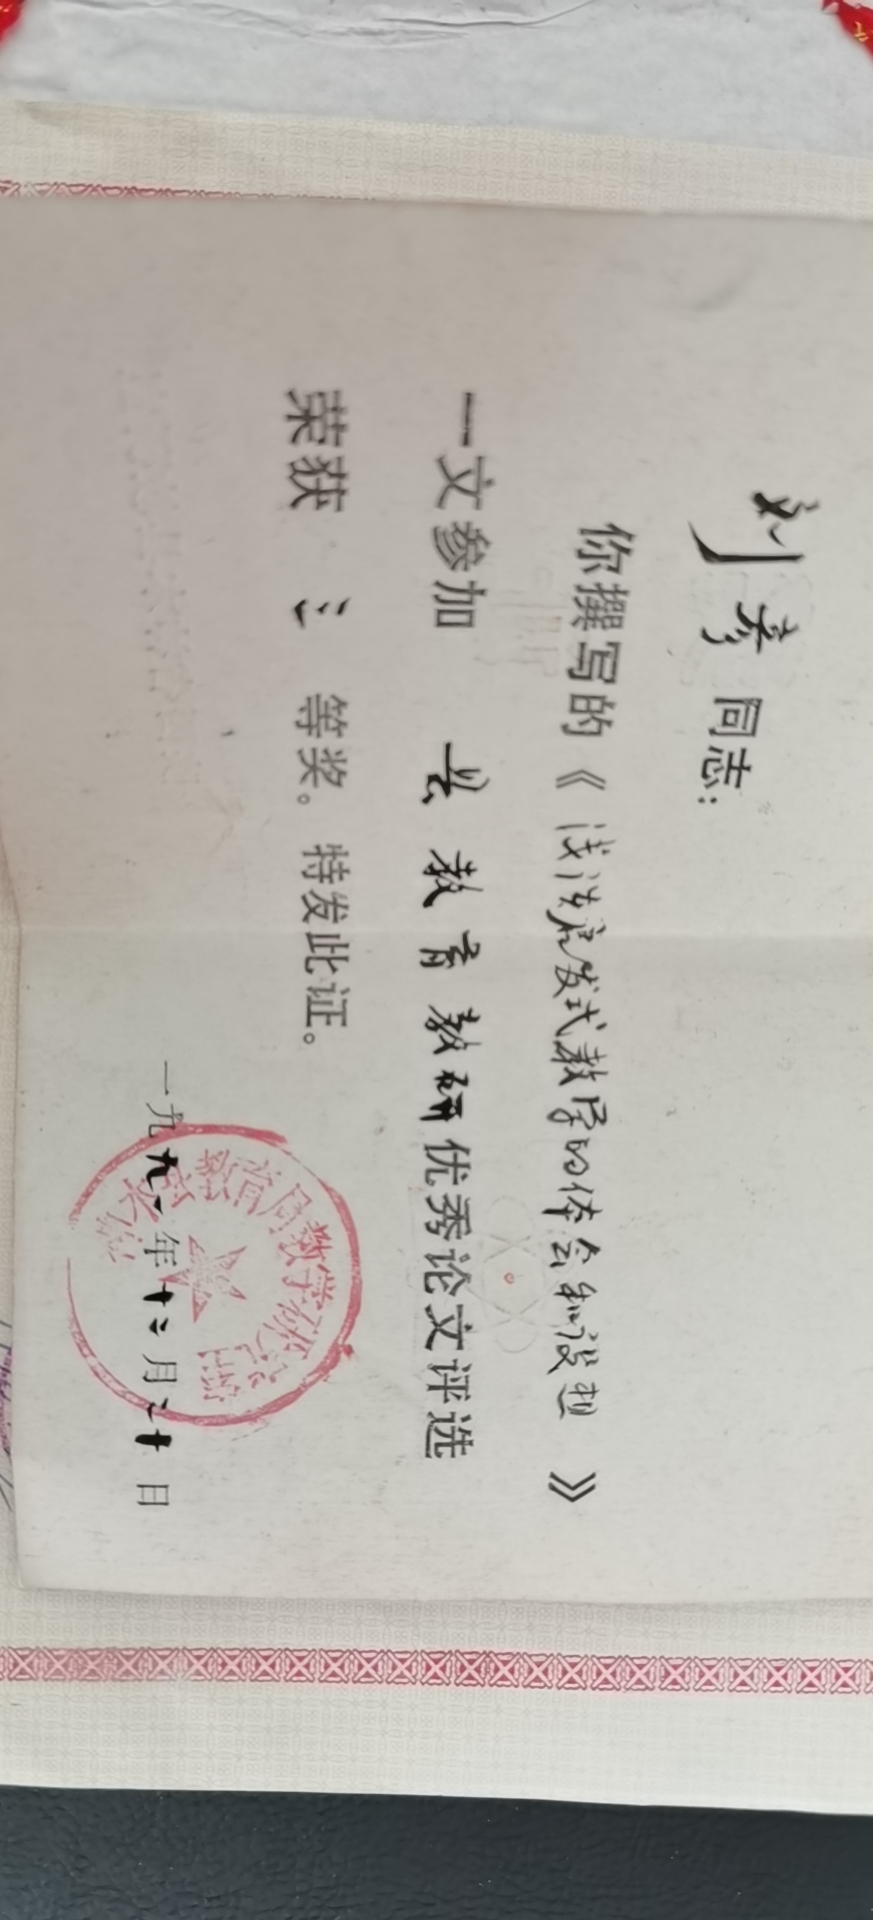 刘彦同志:
你撰写的《浅谈启发式教学的体会和设想》
一文参加 县教育教研优秀论文评选
荣获 三 等奖。特发此证。
一九九一年十二月二十日
教育局教学研究室